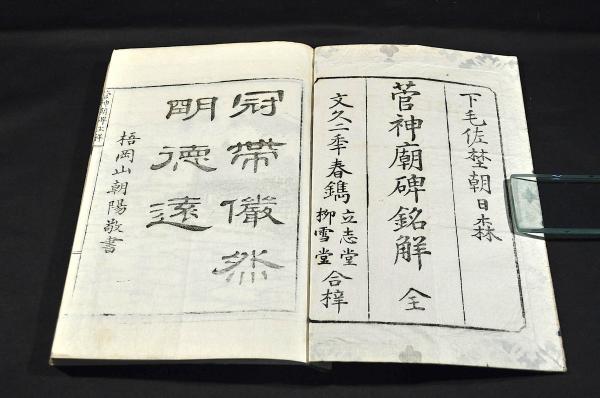 下毛佐埜朝日森
菅神廟碑銘解 全
文久二季春鐫 立志堂 柳雪堂 合梓
冠帶儼然
明德遠
梧岡山朝陽敬書